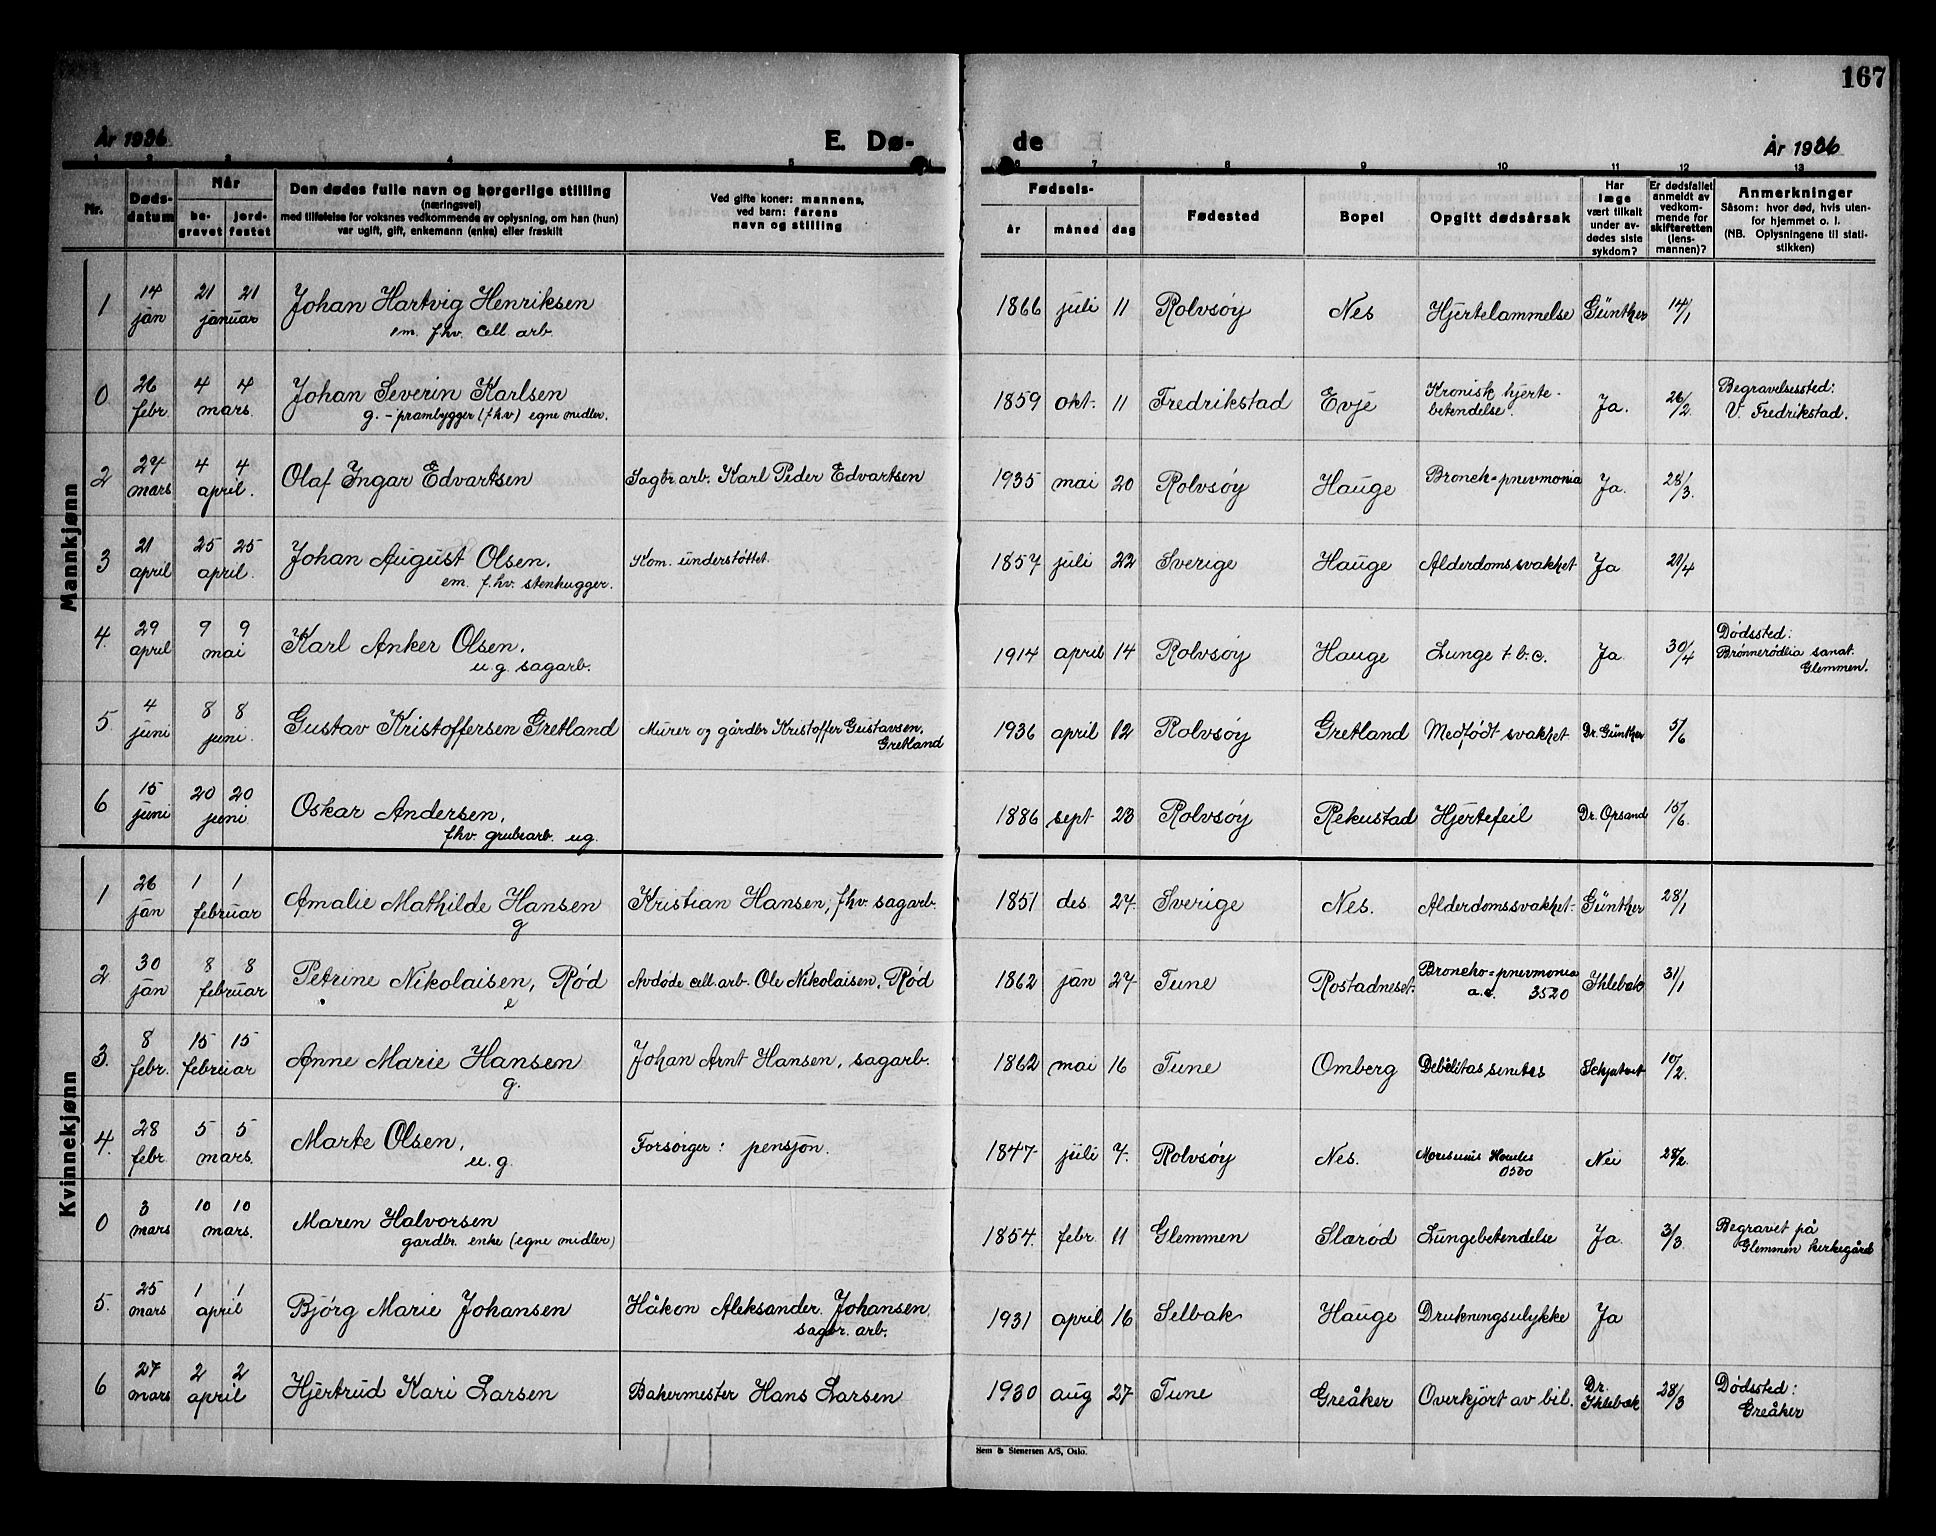 167
År 1936
E. Dø-
de
År 1936
1 2 3 4 5 6 7 8 9 10 11 12 13
Nr.
Døds-
datum
Når
be-
gravet
jord-
festet
Den dødes fulle navn og borgerlige stilling
(næringsvei)
med tilføielse for voksnes vedkommende av oplysning, om han (hun)
var ugift, gift, enkemann (enke) eller fraskilt
Ved gifte koner: mannens,
ved barn: farens
navn og stilling
Fødsels-
år måned dag
Fødested
Bopel
Opgitt dødsårsak
Har
læge
vært tilkalt
under av-
dødes siste
sykdom?
Er dødsfallet
anmeldt av
vedkom-
mende for
skifteretten
(lens-
mannen)?
Anmerkninger
Såsom: hvor død, hvis uten-
for hjemmet o. l.
(NB. Oplysningene til stati-
stikken)
Mannkjønn
1 14 jan 21 21 januar Johan Hartvig Henriksen
em. fhv. cell. arb.
1866 juli 11 Rolvsøy Nes Hjertelammelse Günther 14/1
0 26 febr. 4 4 mars. Johan Severin Karlsen
g. - prambygger (fhv) egne midler.
1859 okt. 11 Fredrikstad Evje Kronisk hjerte-
betendelse. Ja. 26/2. Begravelsessted:
V. Fredrikstad.
2 27 mars 4 4 april. Olaf Ingar Edvartsen Sagbr. arb. Karl Peder Edvartsen
1935 mai 20 Rolvsøy Hauge Bronch=pnevmonia Ja. 28/3.
3 21 april 25 25 april. Johan August Olsen.
em. f.hv. stenhugger.
Kom. understøttet.
1857 juli 22 Sverige Hauge Alderdomssvakhet Ja 21/4
4. 29 april 9 9 mai Karl Anker Olsen.
u.g. sagarb.
1914 april 14 Rolvsøy Hauge Lunge t.b.c. Ja 30/4 Dødssted:
Brønnerødlia sanat.
Glemmen.
5 4 juni 8 8 juni. Gustav Kristoffersen Gretland Murer og gårdbr Kristoffer Gustavsen.
Gretland
1936 april 12 Rolvsøy Gretland Medfødt svakhet Dr. Günther 5/6
6 15 juni 20 20 juni. Oskar Andersen,
fhv. grubearb. ug.
1886 sept 23 Rolvsøy Rekustad Hjertefeil Dr. Opsand 15/6.
Kvinnekjønn
1 26 jan 1 1 februar Amalie Mathilde Hansen
g
Kristian Hansen, fhv. sagarb.
1851 des. 27. Sverige Nes. Alderdomssvakhet. Günther 28/1
2 30 jan 8 8 februar Petrine Nikolaisen, Rød
e
Avdøde cell. arb. Ole Nikolaisen, Rød
1862 jan 27 Tune Rostadneset. Broncho=pnevmonia
a.c. 3520 Ihlebæk 31/1
3. 8 febr. 15 15 februar Anne Marie Hansen
g.
Johan Arnt Hansen, sagarb.
1862 mai 16 Tune Omberg Debilitas senilis 10/2.
4. 28 febr. 5 5 mars. Marte Olsen,
u.g.
Forsørger: pensjon.
1847 juli 7. Rolvsøy Nes. Nei 28/2.
0 3 mars 10 10 mars. Maren Halvorsen
gardbr. enke (egne midler)
1854. febr. 11 Glemmen Slørød Lungebetendelse Ja. 3/3. Begravet på
Glemmen kirkegård
5. 25 mars 1 1 april Bjørg Marie Johansen Håkon Aleksander Johansen.
sagbr. arb.
1931 april 16 Selbak Hauge Drukningsulykke Ja
6 27 mars 2 2 april Hjertrud Kari Larsen Bakermester Hans Larsen
1930 aug 27 Tune Greåker Overkjørt av bil. Dr.
Ihlebæk 28/3 Dødssted:
Greåker
Hem & Stenersen A/S, Oslo.